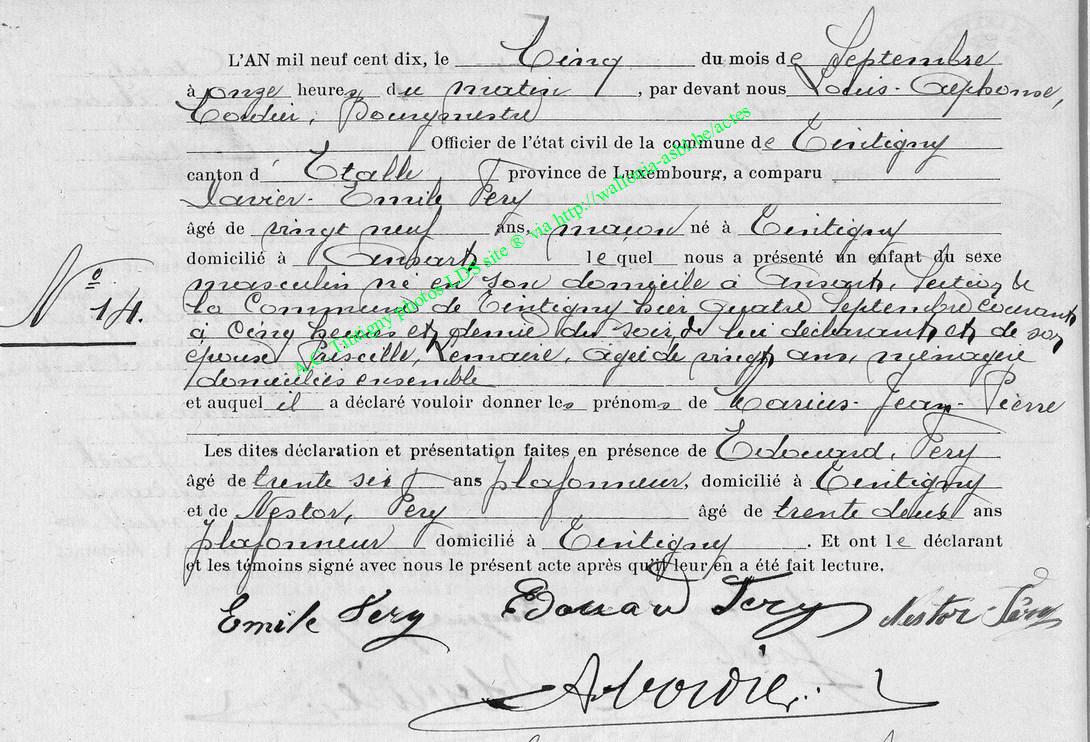 L'AN mil neuf cent dix, le Cinq du mois de Septembre
à onze heures du matin, par devant nous Louis-Alphonse,
Cordier, Bourgmestre
Officier de l'état civil de la commune de Tintigny
canton d'Etalle province de Luxembourg, a comparu
Xavier-Emile Fery
âgé de vingt neuf ans, maçon né à Tintigny
domicilié à Ansart, lequel nous a présenté un enfant du sexe
N° 14.
masculin né en son domicile à Ansart, Section de
la Commune de Tintigny hier quatre Septembre courant
à Cinq heures et demie du soir, de lui déclarant et de son
épouse Priscille, Lemaire, âgée de vingt ans, ménagère
domiciliés ensemble
et auquel il a déclaré vouloir donner les prénoms de Marius-Jean-Pierre
Les dites déclaration et présentation faites en présence de Edouard, Fery
âgé de trente six ans plafonneur, domicilié à Tintigny
et de Nestor, Fery âgé de trente deux ans
plafonneur domicilié à Tintigny. Et ont le déclarant
et les témoins signé avec nous le présent acte après qu'il leur en a été fait lecture.
Emile Fery Edouard Fery Nestor Féry
A Cordier
Tintigny photos LDS site ® via http://wallonia-asbl.be/actes